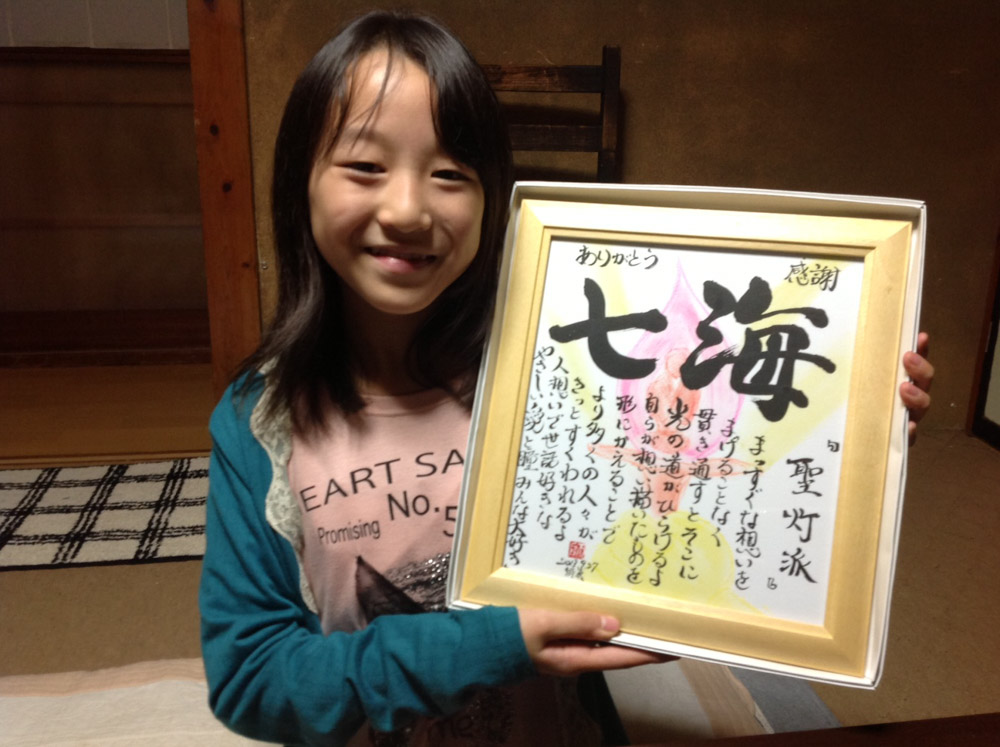 ありがとう
感謝
七海
聖灯派
まっすぐな想いを
まげることなく
貫き通すとそこに
光の道がひらけるよ
自らが想い描いたものを
形にかえることで
より多くの人々が
きっとすくわれるよ
人想いで世話好きな
やさしい
と瞳みんな大好き
EART SA
No. 5
Promising